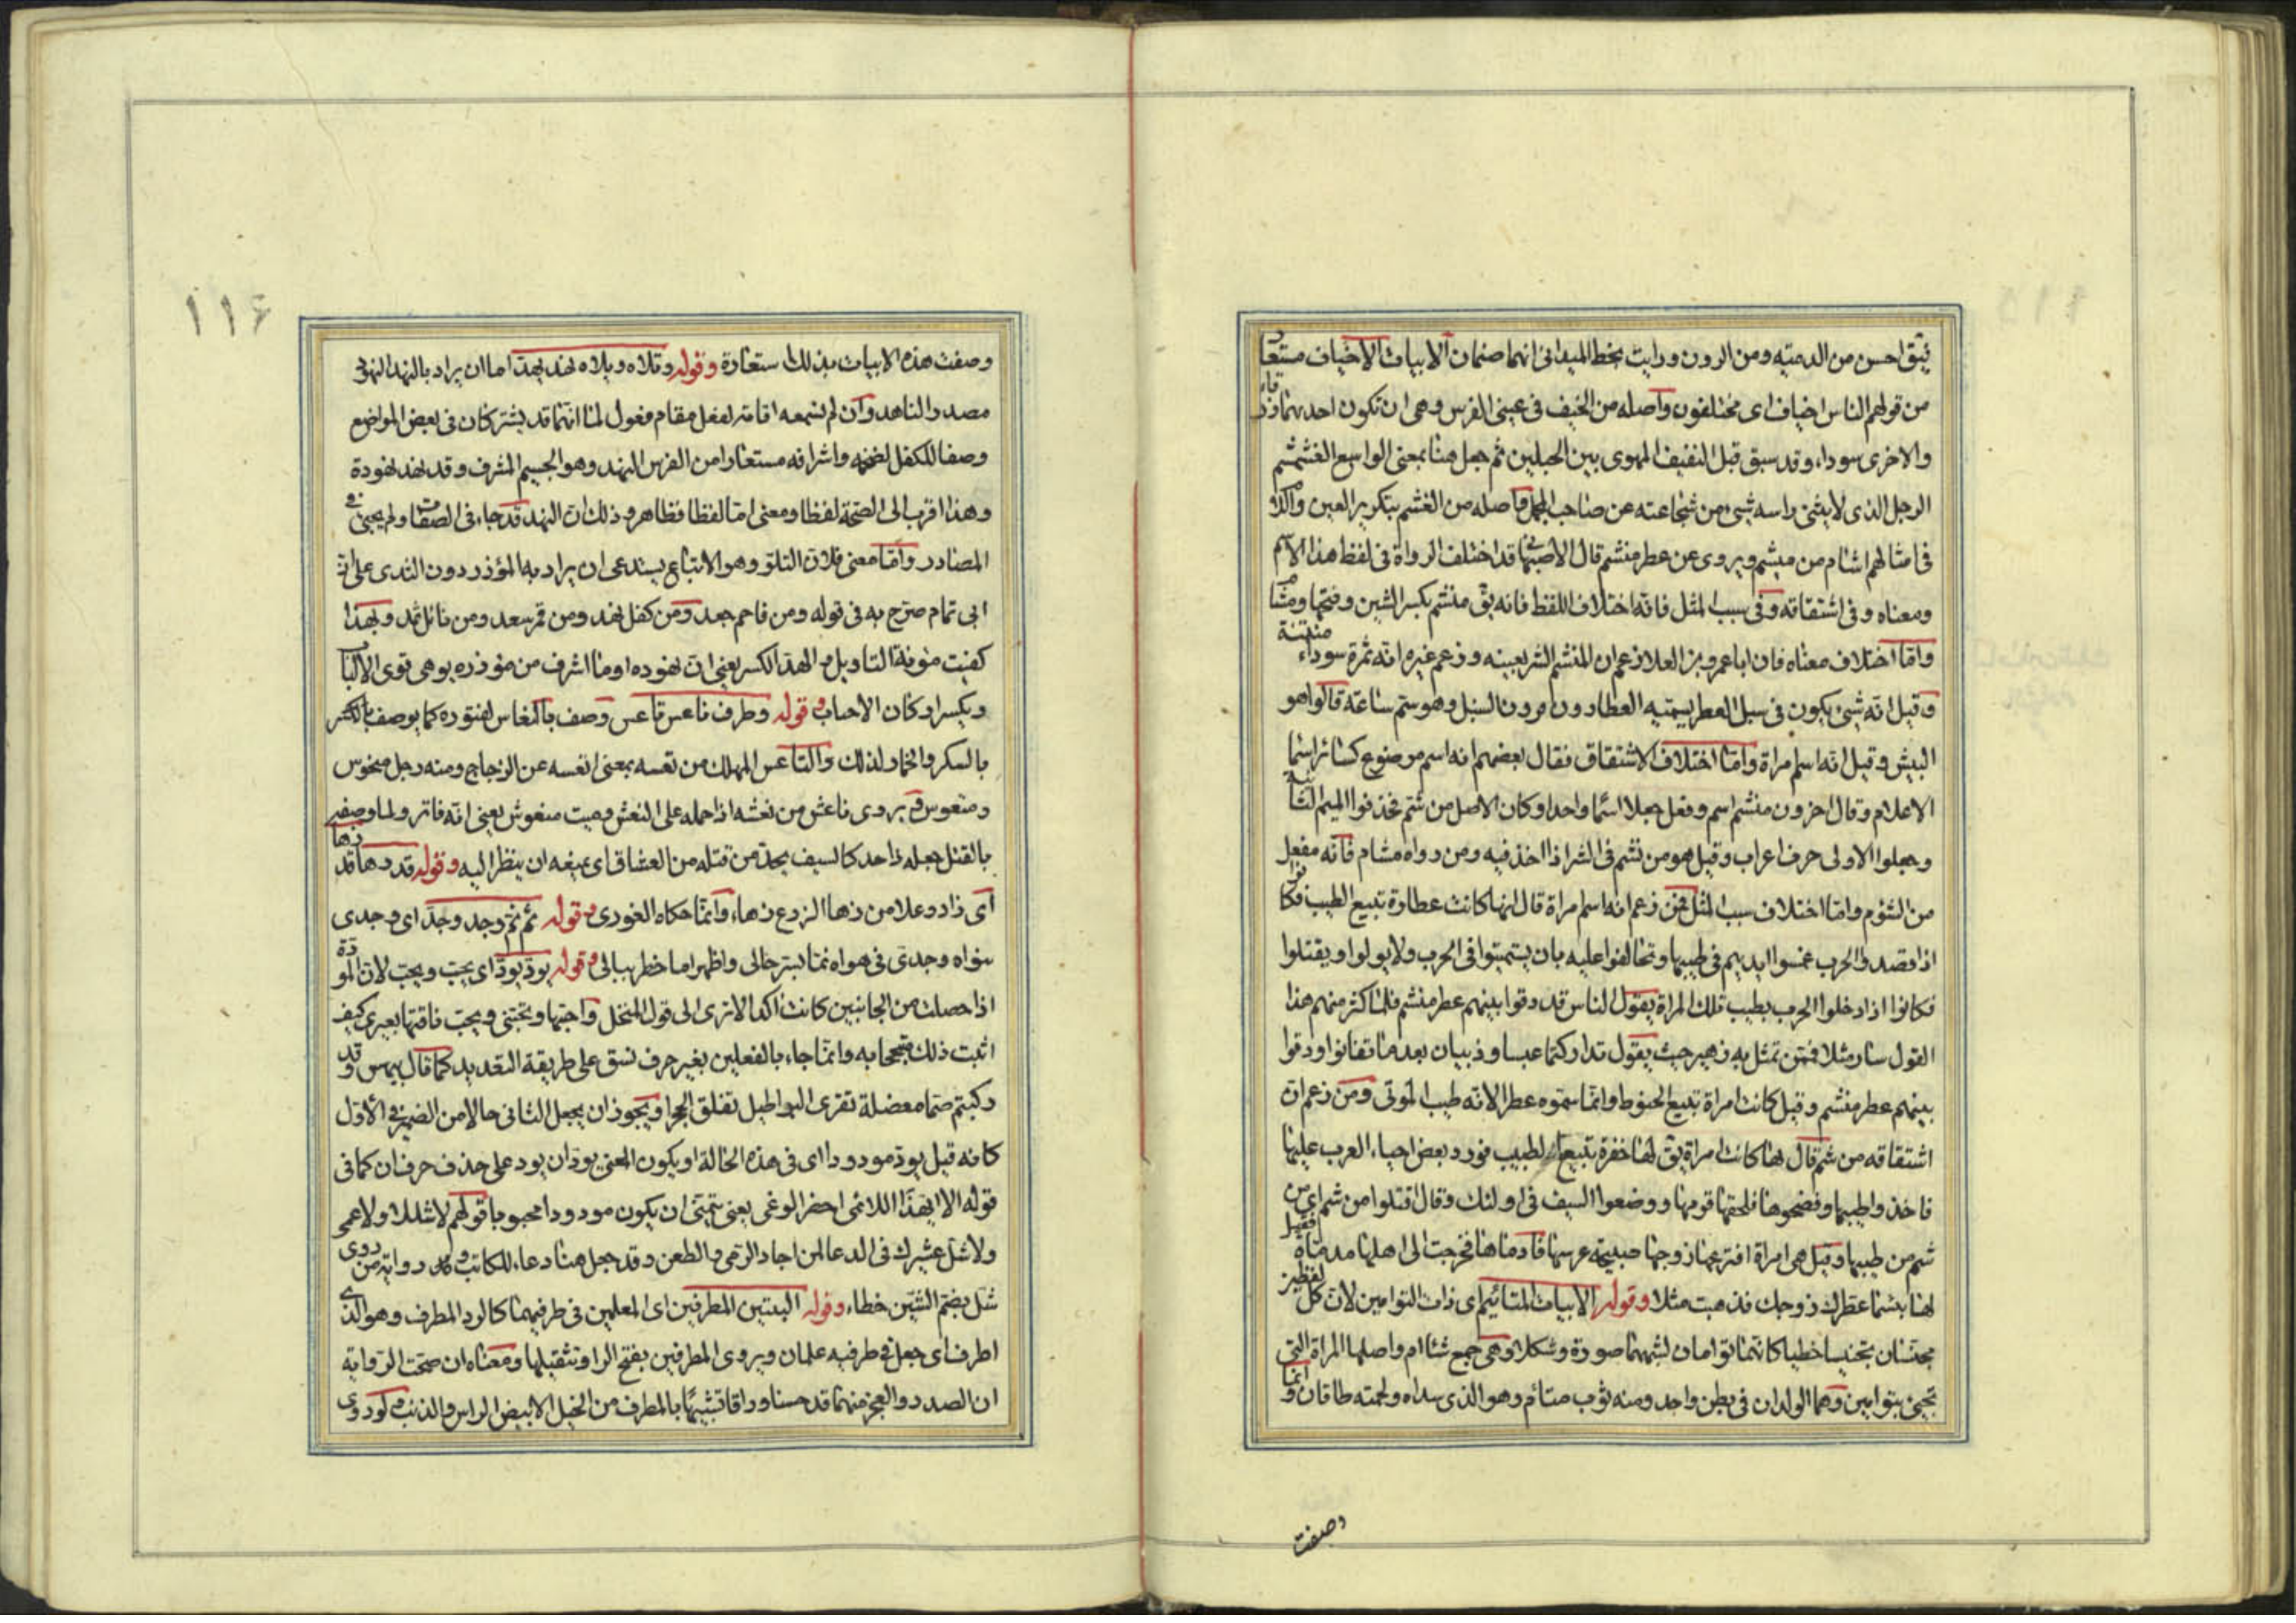 احسن من الدمية ومن الرون ورايت بخط الميدانى انهما صنمان الابيات الاخياف مستعار
من قولهم الناس اخياف اى مختلفون واصله من الخيف فى عينى الفرس وهى ان تكون احديهما زرقاء
والاخرى سوداء وقد سبق قبل النفنف المهوى بين الجبلين ثم جعل هنا بمعنى الواسع الغشمشم
الرجل الذى لا يثنى راسه شىء من شجاعته عن صاحب المجمل واصله من الغشم بتكرير العين واللام
فى امثالهم اشام من منشم ويروى عن عطر منشم قال الاصبهانى قد اختلف الرواة فى لفظ هذا الاسم
ومعناه وفى اشتقاقه وفى سبب المثل فاما اختلاف اللفظ فانه يق منشم بكسر الشين وفتحها ومشام
واما اختلاف معناه فان ابا عمرو بن العلا زعم ان المنشم الشر بعينه وزعم غيره انه ثمرة سوداء منتنة
وقيل انه شىء يكون فى سنبل العطر يسميه العطارون قرون السنبل وهو سم ساعة قالوا هو
البيش وقيل انه اسم امراة واما اختلاف الاشتقاق فقال بعضهم انه اسم موضوع كسائر اسماء
الاعلام وقال اخرون منشم اسم وفعل جعلا اسما واحدا وكان الاصل من شم فحذفوا الميم الثانية
وجعلوا الاولى حرف اعراب وقيل هو من نشم فى الشر اذا اخذ فيه ومن رواه مشام فانه مفعل
من الشؤم واما اختلاف سبب المثل فمن زعم انه اسم امراة قال انها كانت عطارة تبيع الطيب فكانوا
اذا قصدوا الحرب غمسوا ايديهم فى طيبها وتحالفوا عليه بان يستميتوا فى الحرب ولا يولوا او يقتلوا
فكانوا اذا دخلوا الحرب بطيب تلك المراة يقول الناس قد دقوا بينهم عطر منشم فلما كثر منهم هذا
القول سار مثلا فممن تمثل به زهير حيث يقول تداركتما عبسا وذبيان بعد ما تفانوا ودقوا
بينهم عطر منشم وقيل كانت امراة تبيع الحنوط وانما سموه عطرا لانه طيب الموتى ومن زعم ان
اشتقاقه من شم قال انها كانت امراة يق لها خفرة تبيع الطيب فورد بعض احياء العرب عليها
فاخذوا طيبها وفضحوها فلحقها قومها ووضعوا السيف فى اولئك وقال اقتلوا من شم اى من
شم من طيبها وقيل هى امراة افترعها زوجها صبيحة عرسها فادماها فخرجت الى اهلها مدماة فقيل
لها بئسما عطرك زوجك فذهبت مثلا وقوله الابيات المتائيم اى ذات التوامين لان كل لفظين
مجنسان تجنيسا خطيا كانهما توامان لشبههما صورة وشكلا وهى جمع متئام واصلها المراة التى
تجىء بتوامين وهما الولدان فى بطن واحد ومنه ثوب متائم وهو الذى سداه ولحمته طاقان وانما
وصفت
١١٦
وصفت هذه الابيات بذلك استعارة وقوله وتلاه ويلاه نهد يهد اما ان يراد بالنهد النهود
مصدر الناهد وان لم نسمعه اقامة لفعل مقام فعول لما انهما قد يشتركان فى بعض المواضع
وصفا للكفل لضخمه واشرافه مستعارا من الفرس النهد وهو الجسيم المشرف وقد نهد نهودة
وهذا اقرب الى الصحة لفظا ومعنى اما لفظا فظاهر وذلك ان النهد قد جاء فى الصفات ولم يجىء فى
المصادر واما معنى فلان التلو وهو الاتباع يستدعى ان يراد به المؤخر دون الثدى على ان
ابى تمام صرح به فى قوله ومن فاحم جعد ومن كفل نهد ومن قمر سعد ومن نائل ثمد وبهذا
كفيت مؤنة التاويل والهد الكسر يعنى ان نهوده او ما اشرف من مؤخره يوهى قوى الالباب
ويكسر اركان الاحباب وقوله وطرف ناعس تاعس وصف بالنعاس لفتوره كما يوصف بالكسر
بالسكر والخمار لذلك والتاعس المهلك من تعسه بمعنى اتعسه عن الزجاج ومنه رجل منحوس
ومتعوس ويروى ناعش من نعشه اذا حمله على النعش وميت منعوش يعنى انه فاتر ولما وصفه
بالقتل جعله ذا حد كالسيف يحد من قتله من العشاق اى يمنعه ان ينظر اليه وقوله قد زها قدرها
اى زاد وعلا من زها الزرع زهاء وانما حكاه الغورى وقوله نم ثم وجد وجد اى وجدى
سواه وجدى فى هواه نما بسر حالى واظهر ما خطر ببالى وقوله يود يود اى يحب ويحب لان المودة
اذا حصلت من الجانبين كانت اكد الا ترى الى قول المنخل واحبها وتحبنى ويحب ناقتها بعيرى كيف
اثبت ذلك متبجحا به وانما جاء بالفعلين بغير حرف نسق على طريقة التعديد كما قال بيهس وقد
ركبتم صماء معضلة تفرى البراطيل تفلق الحجرا ويجوز ان يجعل الثانى حالا من الضمير فى الاول
كانه قيل يود مودودا اى فى هذه الحالة او يكون المعنى يود ان يود على حذف حرف ان كما فى
قوله الا ايهذا اللائمى احضر الوغى يعنى يتمنى ان يكون مودودا محبوبا قولهم لا شللا ولا عمى
ولا شل عشرك فى الدعا لمن اجاد الرمى والطعن وقد جعل هنا دعاء للكاتب ورواية من روى
شل بضم الشين خطاء وقوله البيتين المطرفين اى المعلمين فى طرفيهما كالرداء المطرف وهو الذى
اطرف اى جعل فى طرفيه علمان ويروى المطرفين بفتح الرا وتثقيلها ومعناه ان صحت الرواية
ان الصدر والعجز منهما قد حسنا وراقا تشبيها بالمطرف من الخيل الابيض الراس والذنب ولو روى